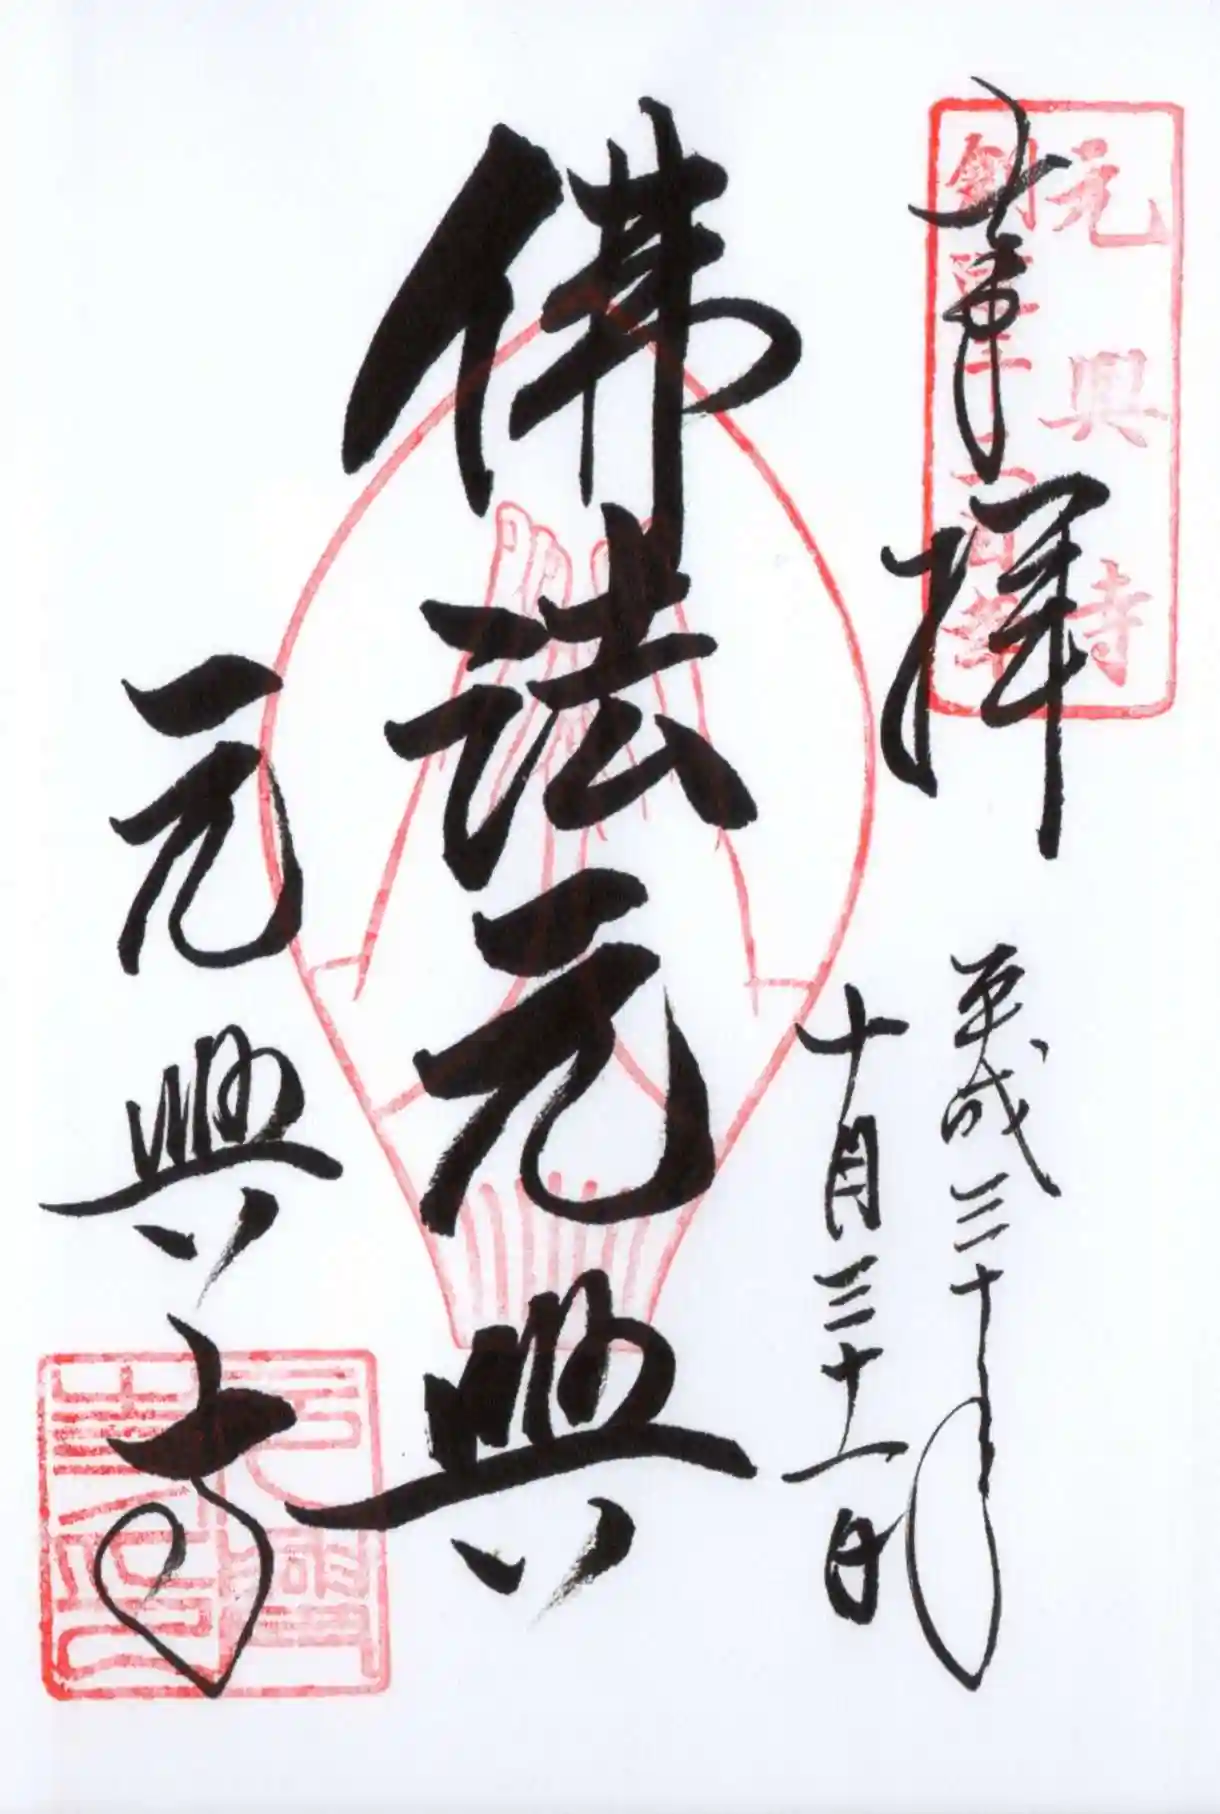 元興寺
奉拝
平成三十年
十月三十一日
佛法元興
元興寺
元興寺印